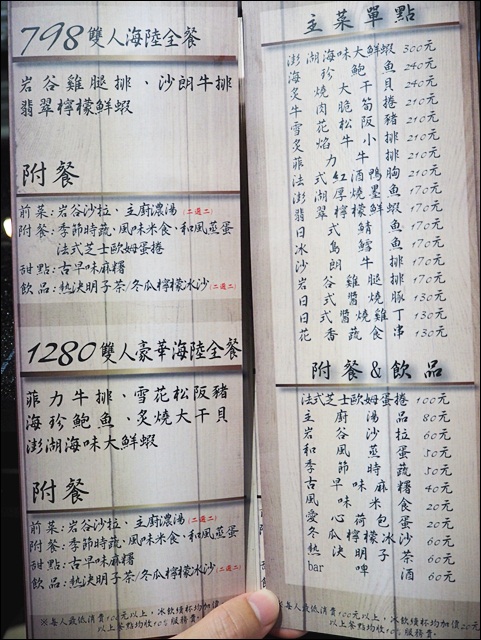 798雙人海陸全餐
岩谷雞腿排、沙朗牛排
翡翠檸檬鮮蝦
附餐
前菜:岩谷沙拉、主廚濃湯(二選二)
附餐:季節時蔬、風味米食、和風蒸蛋
法式芝士歐姆蛋捲
甜點:古早味麻糬
飲品:熱決明子茶/冬瓜檸檬冰沙(二選二)
1280雙人豪華海陸全餐
菲力牛排、雪花松阪豬
海珍鮑魚、炙燒大干貝
澎湖海味大鮮蝦
附餐
前菜:岩谷沙拉、主廚濃湯(二選二)
附餐:季節時蔬、風味米食、和風蒸蛋
甜點:古早味麻糬
飲品:熱決明子茶/冬瓜檸檬冰沙(二選二)
主菜單點
澎湖海味大鮮蝦 300元
海珍鮑魚 240元
炙燒大干貝 240元
牛肉脆筍捲 210元
雪花松阪豬 210元
炙焰牛小排 210元
菲力牛排 210元
法式紅酒鴨胸 210元
澎湖厚燒墨魚 170元
翡翠檸檬鮮蝦 170元
日式鯖魚 170元
冰島鱈魚 170元
沙朗牛排 170元
岩谷雞腿排 170元
日式醬燒豚 130元
日式醬燒雞丁 130元
花香蔬食串 130元
附餐&飲品
法式芝士歐姆蛋捲 100元
主廚湯品 80元
岩谷沙拉 60元
和風蒸蛋 50元
季節時蔬 50元
古早味麻糬 40元
風味米食 20元
愛心荷包蛋 20元
冬瓜檸檬冰沙 60元
熱決明子茶 60元
bar啤酒 60元
※每人最低消費100元以上,冰飲續杯均加價20元
以上餐點均收10%服務費。